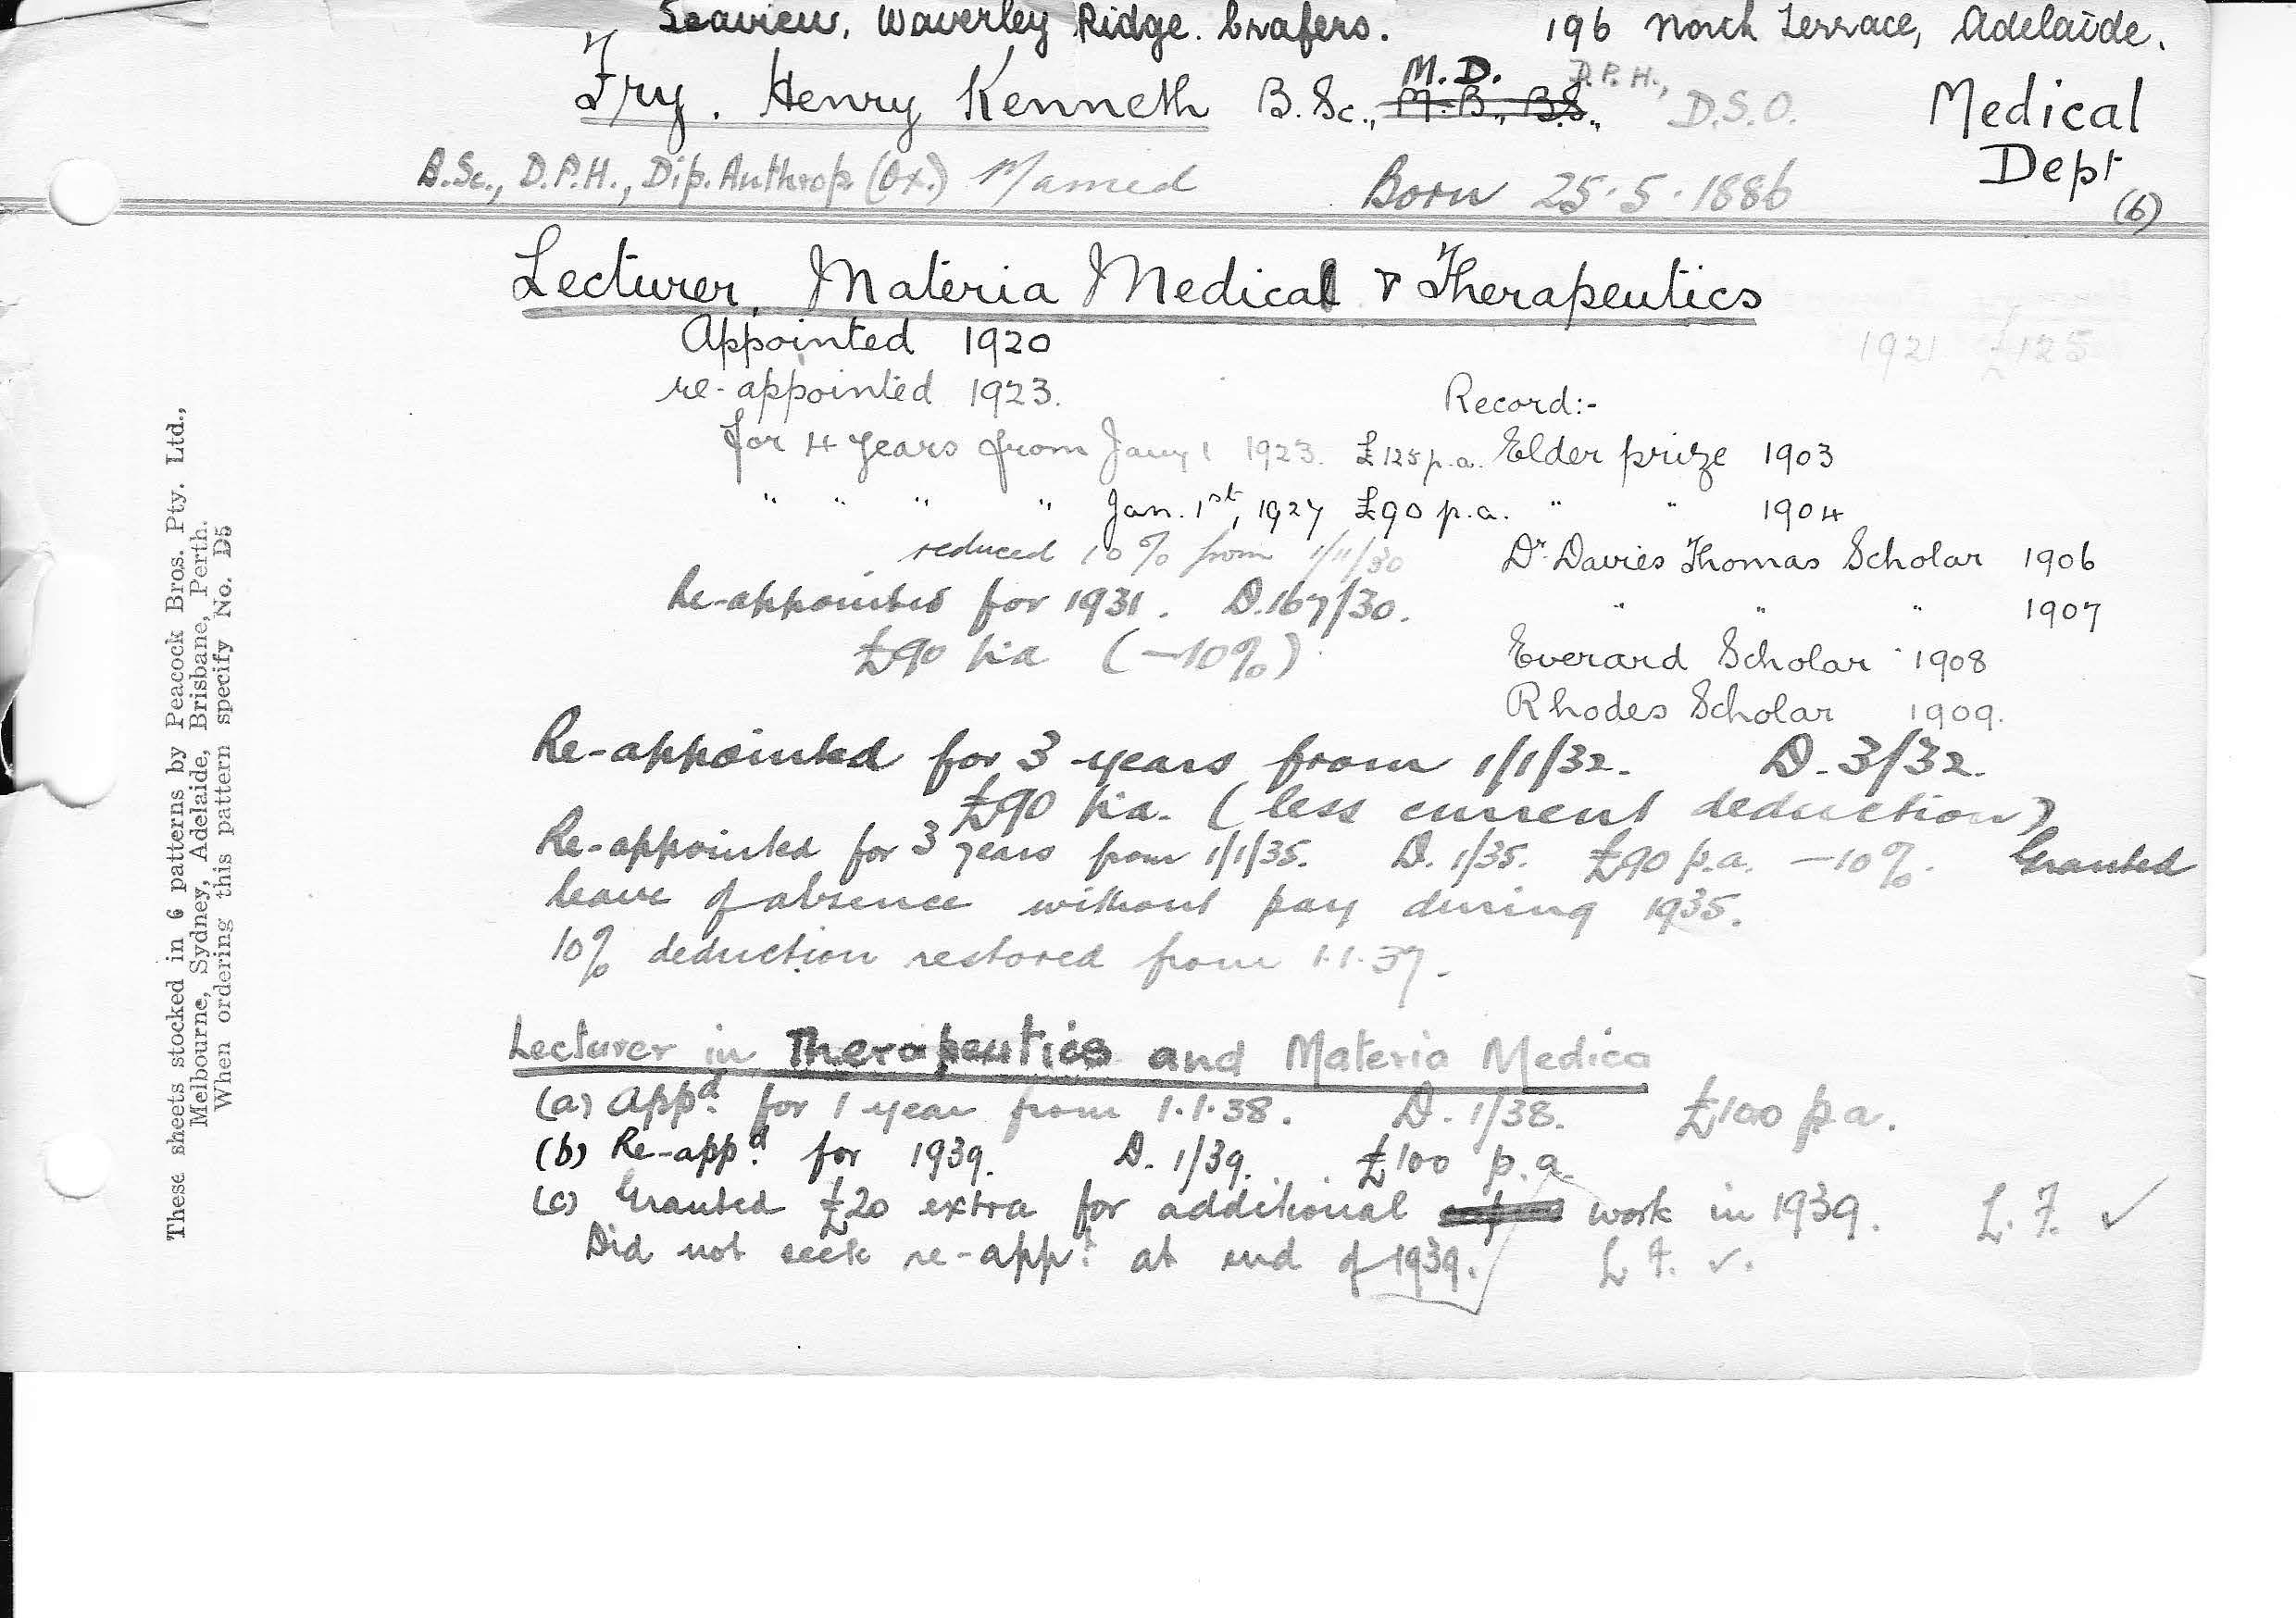 Seaview, Waverley Ridge. Crafers. 196 North Terrace, Adelaide.
Fry. Henry Kenneth B.Sc., M.B., B.S., M.D. D.P.H., D.S.O.
Medical Dept (6)
B.Sc., D.P.H., Dip. Anthrop. (Ox.) Married Born 25.5.1886
Lecturer, Materia Medical & Therapeutics
Appointed 1920
1921 £125
re-appointed 1923.
Record:-
for 4 years from Jany 1 1923. £125 p.a. Elder prize 1903
" " " " Jan. 1st, 1927 £90 p.a. " " 1904
reduced 10% from 1/11/30 Dr. Davies Thomas Scholar 1906
Re-appointed for 1931. D.167/30. " " " 1907
£90 p.a. (-10%) Everard Scholar 1908
Rhodes Scholar 1909.
Re-appointed for 3 years from 1/1/32. D. 3/32.
£90 p.a. (less current deduction)
Re-appointed for 3 years from 1/1/35. D. 1/35. £90 p.a. -10%. Granted
leave of absence without pay during 1935.
10% deduction restored from 1.1.37.
Lecturer in Therapeutics and Materia Medica
(a) Appd. for 1 year from 1.1.38. D. 1/38. £100 p.a.
(b) Re-appd. for 1939. D. 1/39. £100 p.a.
(c) Granted £20 extra for additional work in 1939. L.F. ✓
Did not seek re-appt. at end of 1939. L.F. ✓.
These sheets stocked in 6 patterns by Peacock Bros. Pty. Ltd.,
Melbourne, Sydney, Adelaide, Brisbane, Perth.
When ordering this pattern specify No. D5